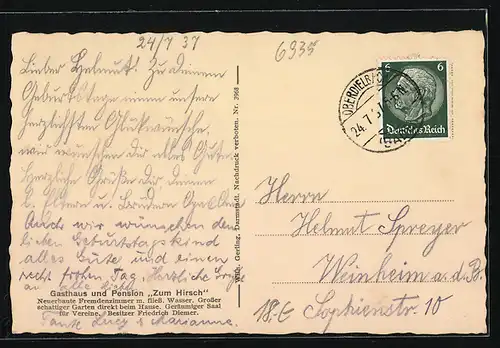 24/7 37
6935
Lieber Helmut! Zu Deinem
Geburtstage einen unsere
herzlichsten Glückwünsche,
wir wünschen dir alles Gute
Herzliche Grüße dir, deinen
l. Eltern u. Brüdern
Auch wir wünschen dem
lieben Geburtstagskind
alles Gute und einen
recht frohen Tag. Herzliche
an alle
Gasthaus und Pension „Zum Hirsch"
Neuerbaute Fremdenzimmer m. fließ. Wasser. Großer
schattiger Garten direkt beim Hause. Geräumiger Saal
für Vereine. Besitzer Friedrich Diemer.
Tante Lucy u Marianne.
Gerling, Darmstadt. Nachdruck verboten. Nr. 3968
OBERDIELBACH
24.7.
6 6
Deutsches Reich
Herrn
Helmut Spreyer
Weinheim a.d.B.
18-E Sophienstr. 10